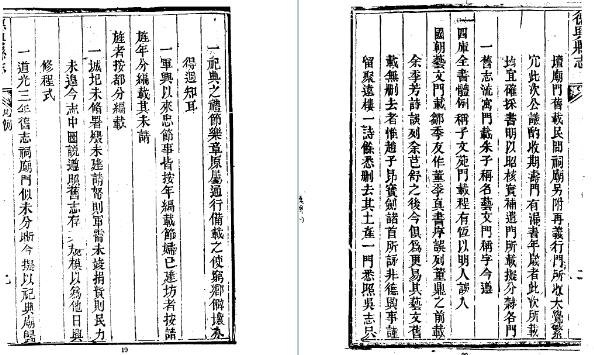 一祀典之禮節樂章原屬通行備載之使窮鄉僻壤亦
得週知耳
一軍興以來忠節事皆按年編載節孀已建坊者按請
旌年分編載其未請
旌者按部分編載
一城池未脩署未建請帑則軍需未竣捐貲則民力
未遑今志中圖說遵照舊志存規模以爲他日興
修程式
一道光三年舊志祠廟門似未分晰今擬以祀典廟歸
九
19
德興縣志
壇廟門舊載民間祠廟另附再義行門所收太覺繁
冗此次公議酌收期壽門有濫書年歲者此次所載
均宜確採書明以昭核實補遺門所載擬分隸各門
一舊志流寓門載朱子稱名藝文門稱字今遵
四庫全書體例稱子文苑門載程有恆以明人誤入
國朝藝文門載鄒季友作董季真書序誤列董鼎之前載
余季芳詩誤列余芑舒之後今但爲更易其藝文舊
載無刪去者惟趙子昂寶劍諸首所詠非德興事謹
留聚遠樓一詩餘悉刪去其土產一門悉照吳志只
20